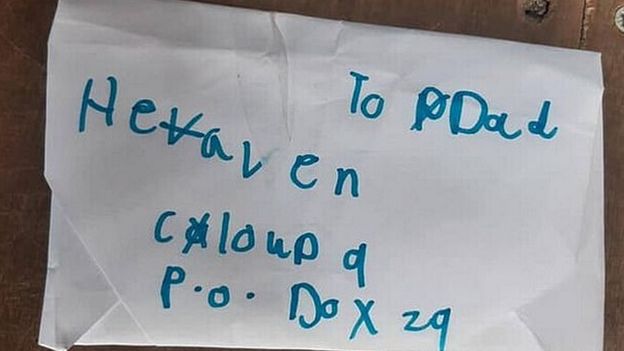 To Dad
Heaven
clouD 9
P.o. Dox 29